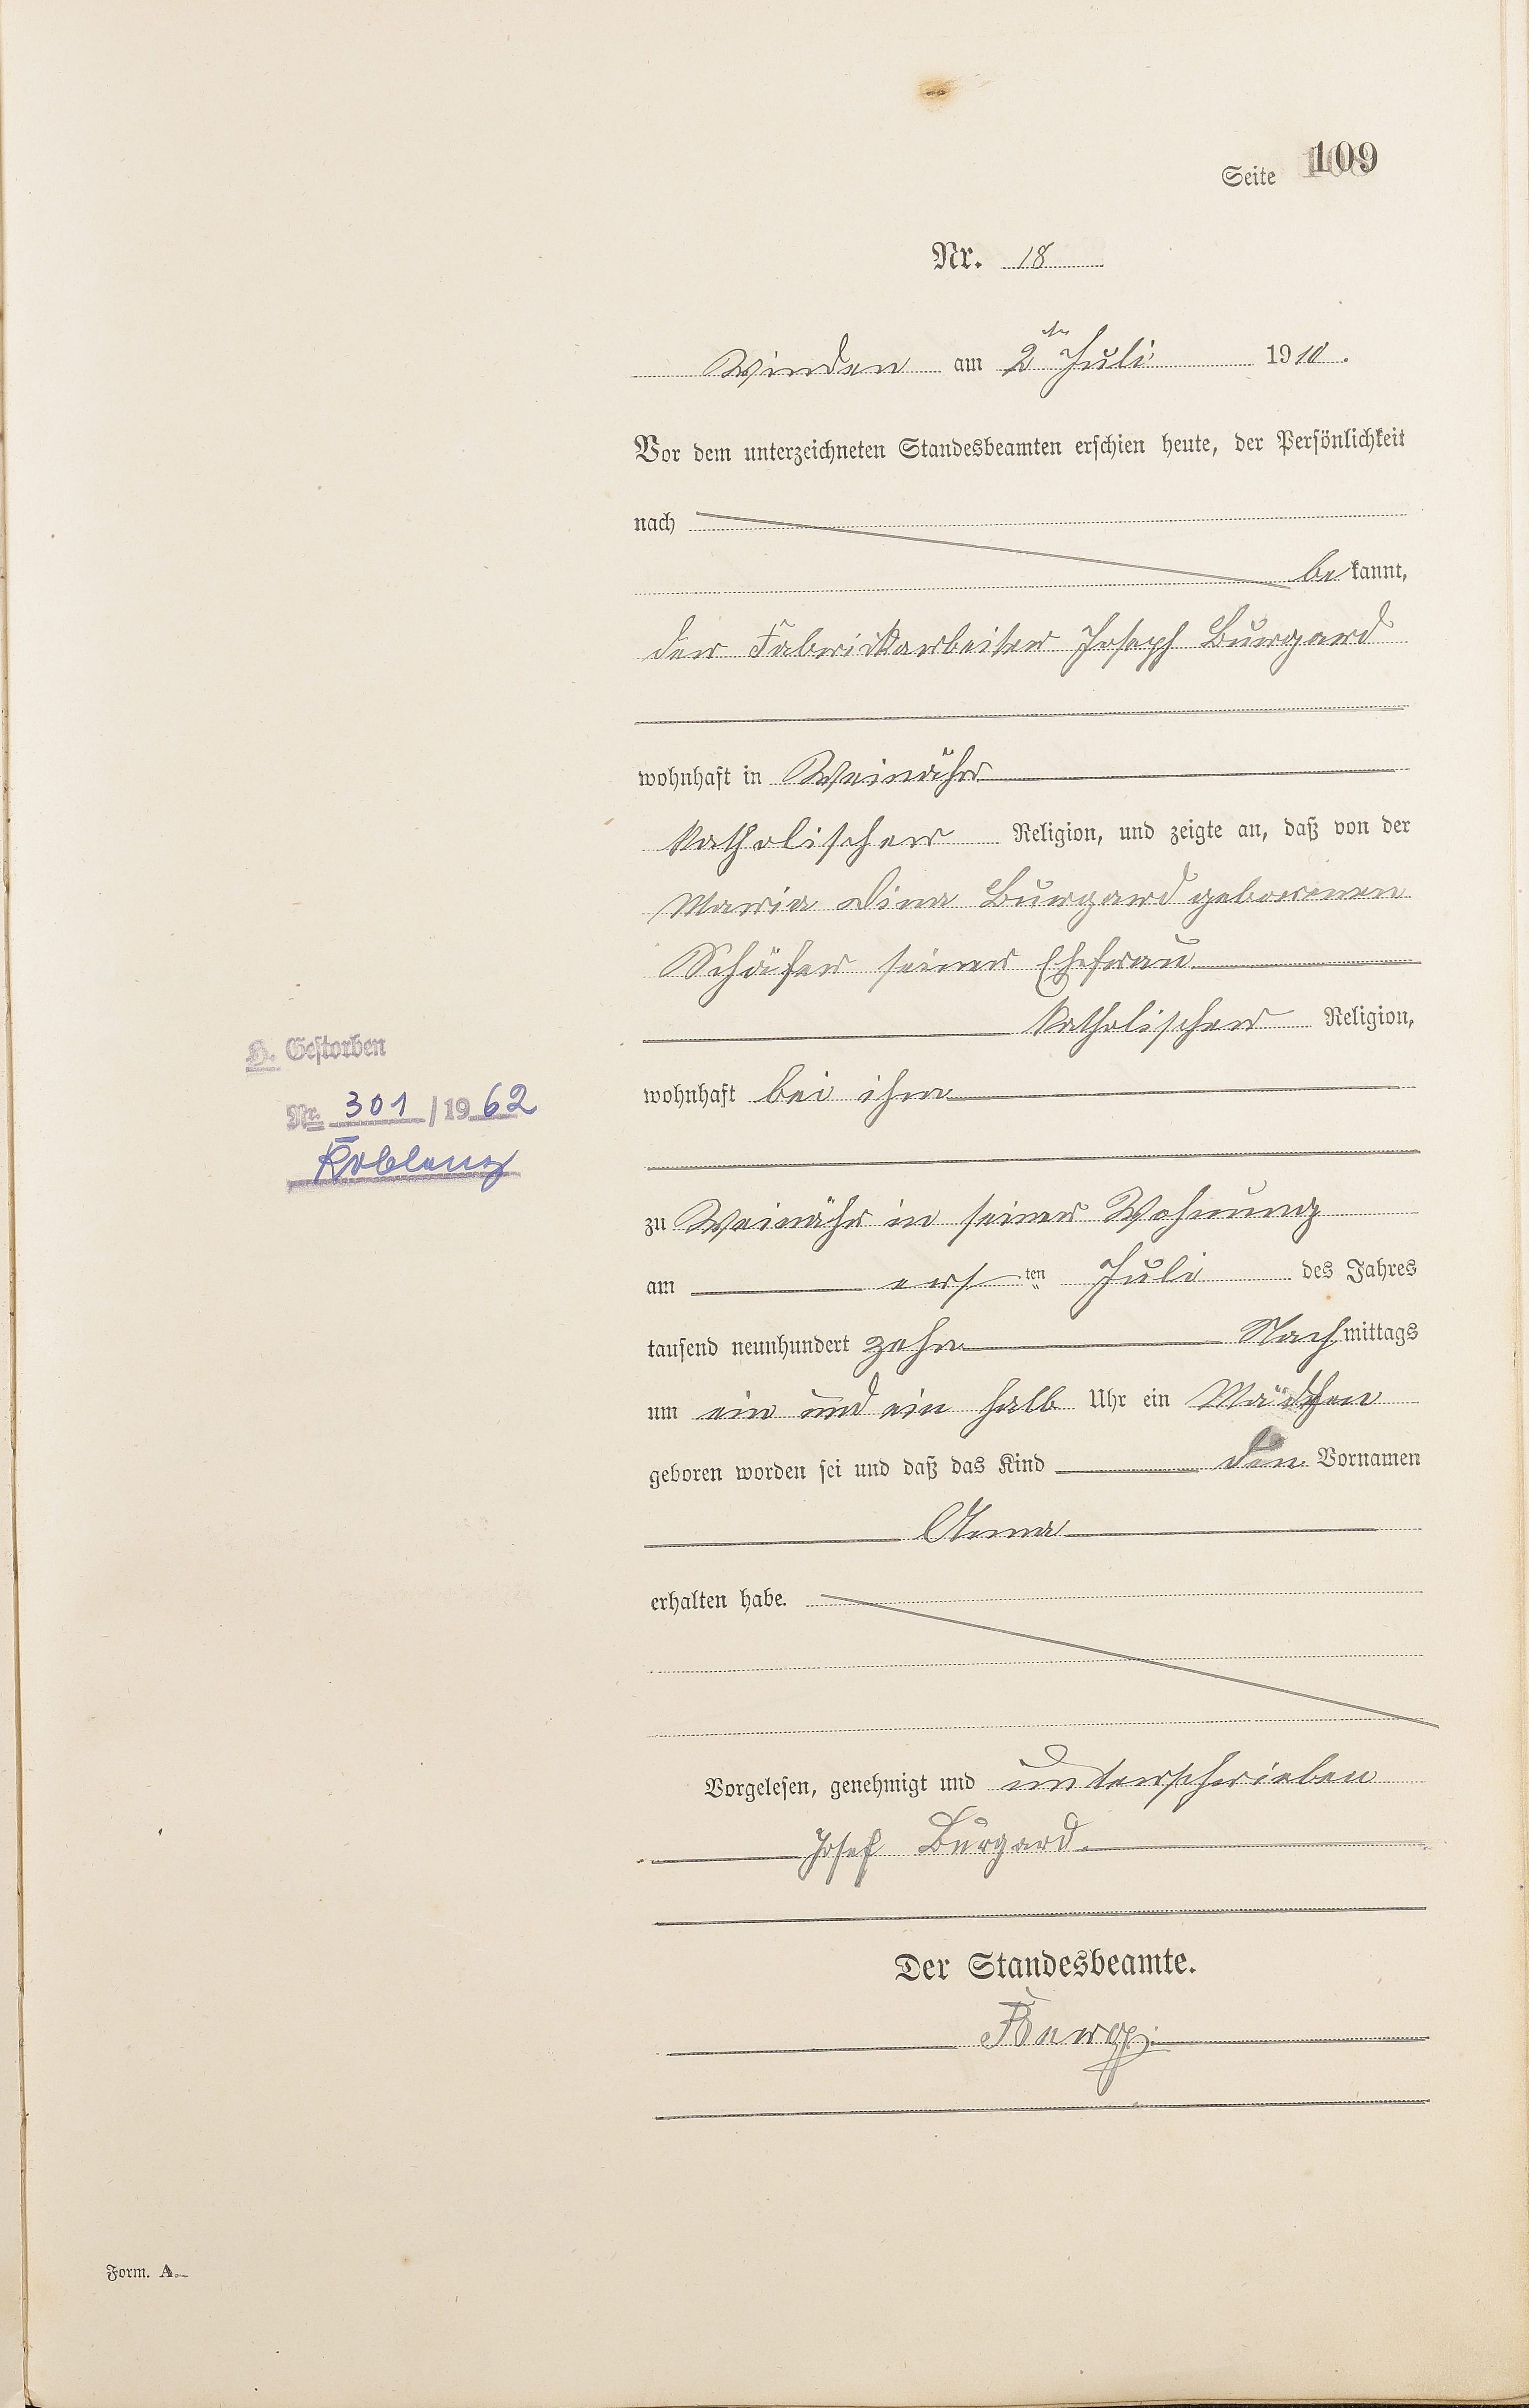 Seite 109
Nr. 18
Winden am 2ten Juli 1910.
Vor dem unterzeichneten Standesbeamten erschien heute, der Persönlichkeit
nach
be kannt,
der Fabrickarbeiter Joseph Burgard
wohnhaft in Weinähr
katholischer Religion, und zeigte an, daß von der
Maria Dina Burgard geborenen
Schäfer seiner Ehefrau
katholischer Religion,
wohnhaft bei ihm
zu Weinähr in seiner Wohnung
am ersten Juli des Jahres
tausend neunhundert zehn Nachmittags
um ein und ein halb Uhr ein Mädchen
geboren worden sei und daß das Kind den Vornamen
Anna
erhalten habe.
Vorgelesen, genehmigt und unterschrieben
Josef Burgard.
Der Standesbeamte.
H. Gestorben
Nr. 301/1962
Koblenz
Form. A.